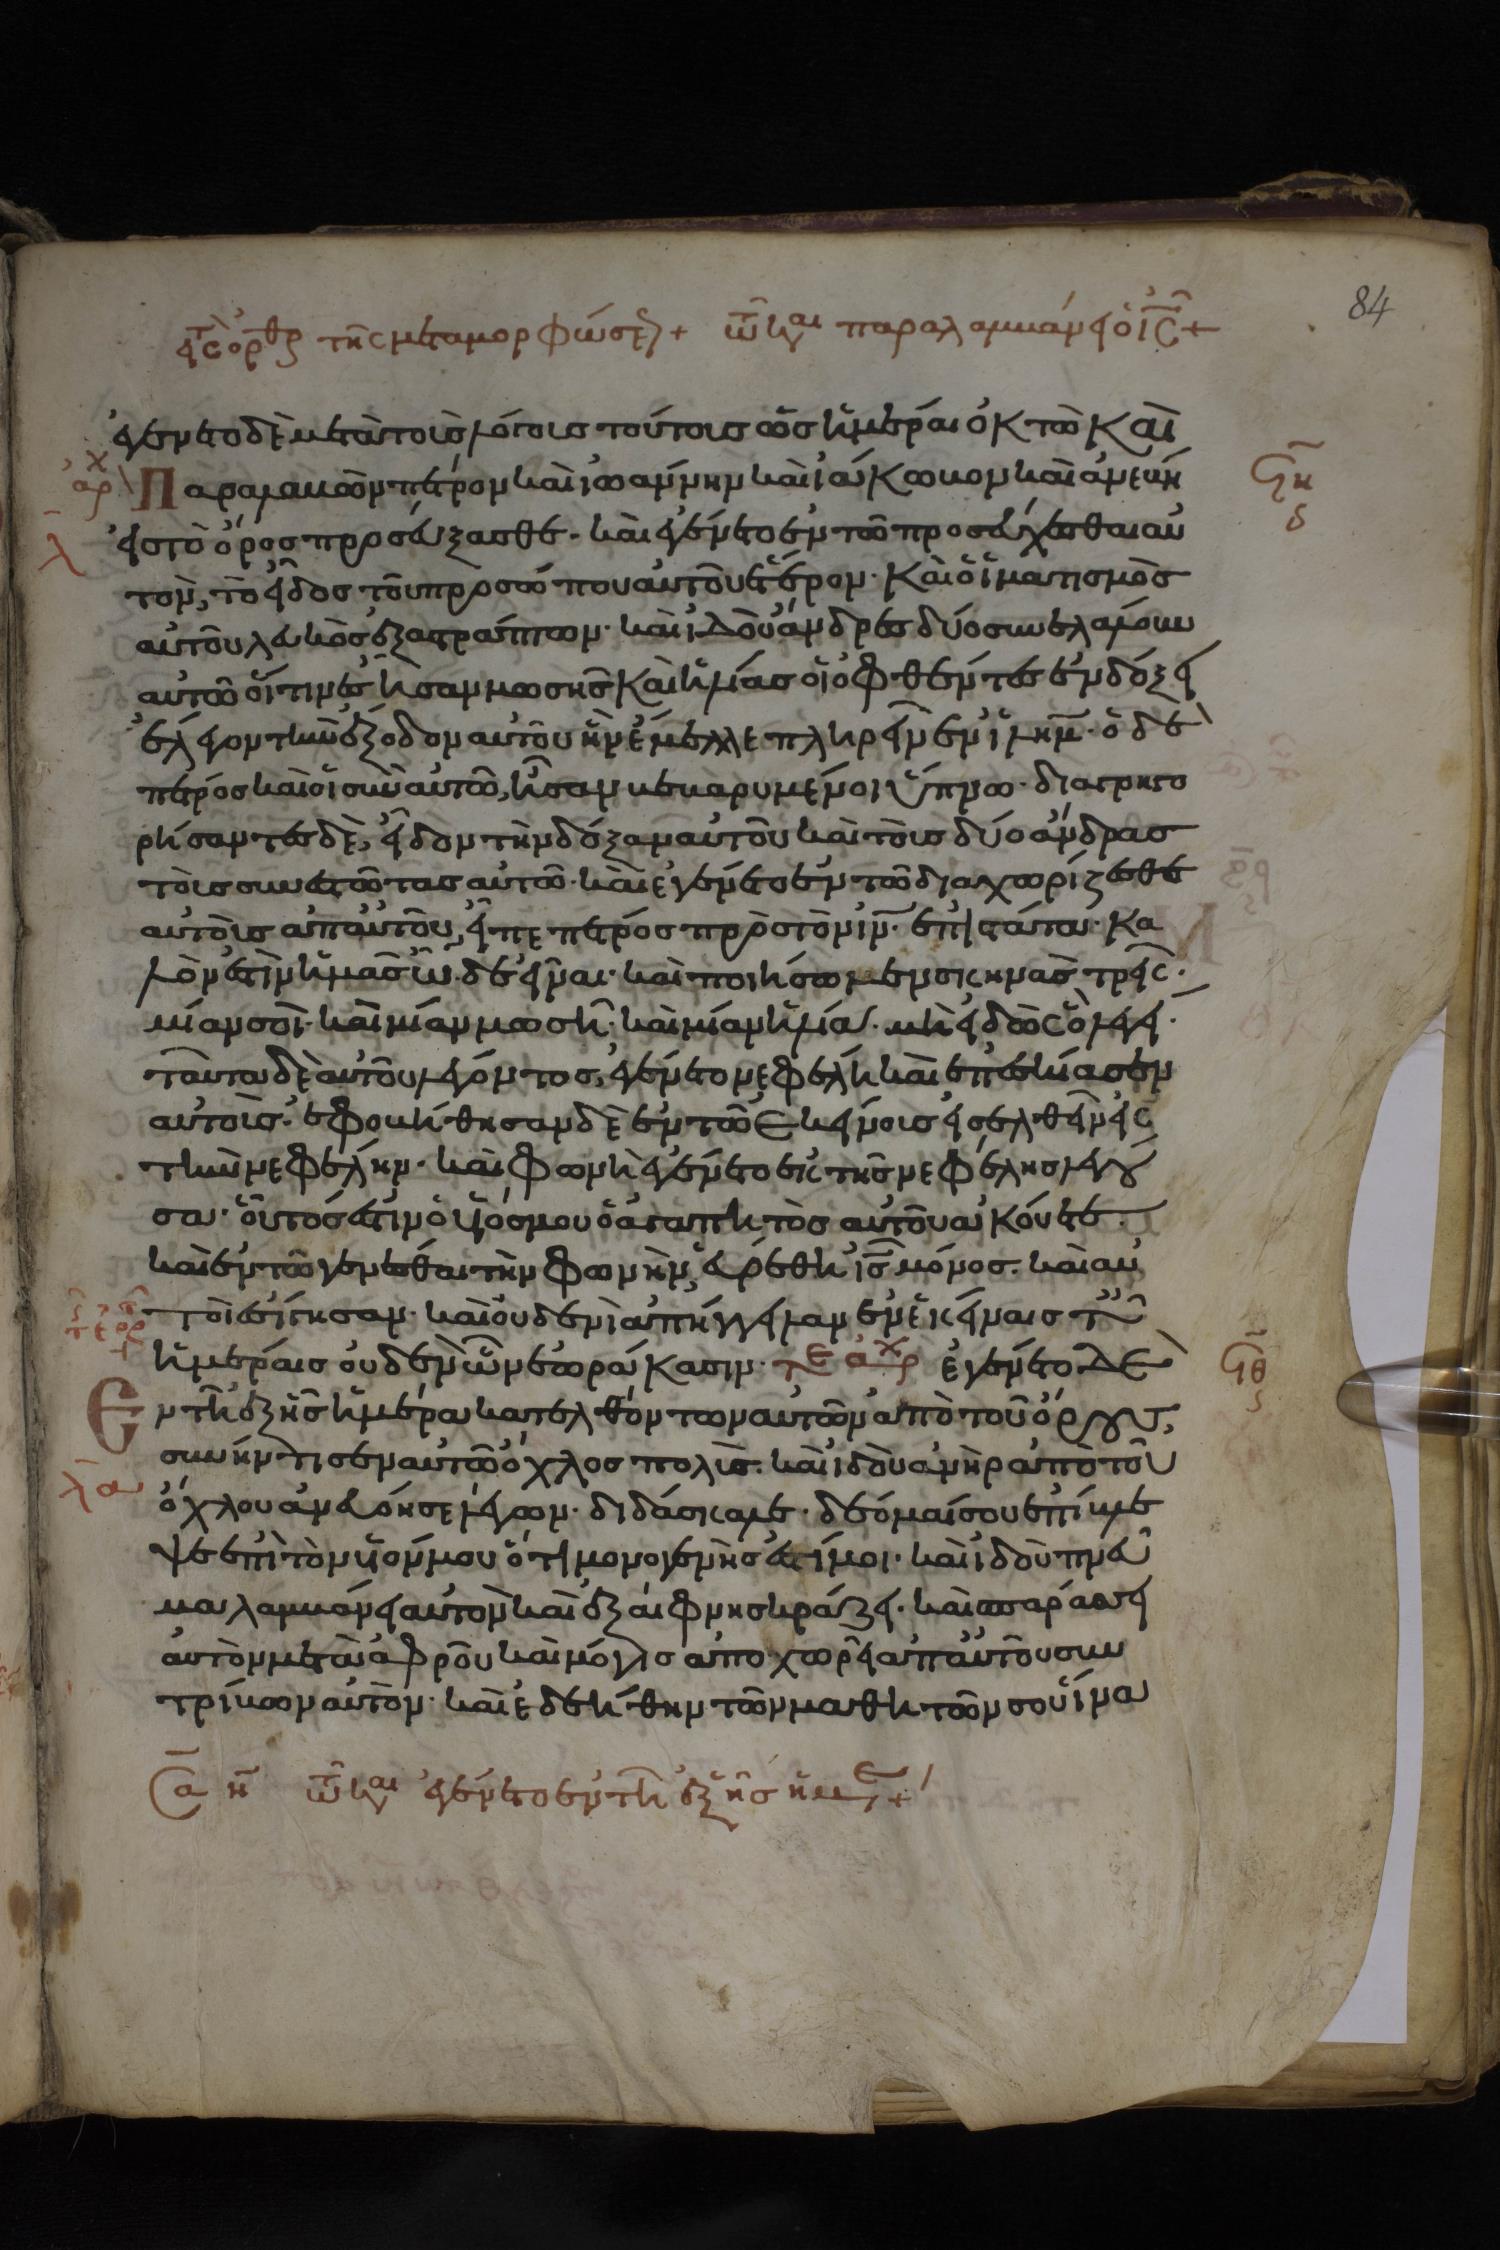 84
εἰς τ ὄρθρ τῆς μεταμορφώσε + τῶ καιρ παραλαμβάνει ὁ ις +
ἐγένετο δὲ μετὰ τοὺς λόγους τούτους ὡς ἡμέραι ὀκτὼ καὶ
αρχ Παραλαβὼν πέτρον καὶ ἰωάννην καὶ ἰάκωβον καὶ ἀνέβη
εἰς τὸ ὄρος προσεύξασθε· καὶ ἐγένετο ἐν τῶ προσεύχεσθαι αὐ
λ
τὸν, τὸ εἶδος τοῦ προσώπου αὐτοῦ ἕτερον· καὶ ὁ ἱματισμὸς
αὐτοῦ λευκὸς ἐξαστράπτων· καὶ ἰδοὺ ἄνδρες δύο συνελάλουν
αὐτῶ οἵτινες ἦσαν μωσης καὶ ἡλίας οἳ ὀφθέντες ἐν δόξει
ἔλεγον τὴν ἔξοδον αὐτοῦ ἣν ἔμελλε πληρεῖν ἐν ἱλημ· ὁ δὲ
πέτρος καὶ οἱ σὺν αὐτῶ, ἦσαν βεβαρυμένοι ὕπνω· διαγρηγο
ρήσαντες δὲ, εἶδον τὴν δόξαν αὐτοῦ καὶ τοὺς δύο ἄνδρας
τοὺς συνεστῶτας αὐτῶ· καὶ ἐγένετο ἐν τῶ διαχωρίζεσθε
αὐτοὺς ἀπ αὐτοῦ, εἶπε πέτρος πρὸς τὸν ιν· ἐπιστάτα· κα
λόν ἐστιν ἡμᾶς ὧδε εἶναι· καὶ ποιήσωμεν σκηνὰς τρεῖς·
μίαν σοὶ· καὶ μίαν μωσῆ· καὶ μίαν ἡλία· μὴ εἰδὼς ὃ λέγει·
ταῦτα δὲ αὐτοῦ λέγοντος, ἐγένετο νεφέλη καὶ ἐπεσκίασεν
αὐτούς· ἐφοβήθησαν δὲ ἐν τῶ ἐκείνους εἰσελθεῖν εἰς
τὴν νεφέλην· καὶ φωνὴ ἐγένετο ἐκ τῆς νεφέλης λέγου
σα· οὗτός ἐστιν ὁ υἱός μου ὁ ἀγαπητὸς αὐτοῦ ἀκούετε·
καὶ ἐν τῶ γενέσθαι τὴν φωνὴν, εὑρέθη ις μόνος· καὶ αὐ
τοὶ ἐσίγησαν· καὶ οὐδενὶ ἀπήγγειλαν ἐν ἐκείναις τ
ἡμέραις οὐδὲν ὧν ἑωράκασιν· τε αρχ ἐγένετο δὲ
Εν τῆ ἑξῆς ἡμέρα κατελθόντων αὐτῶν ἀπὸ τοῦ ὄρους,
συνήντισεν αὐτῶ ὄχλος πολύς· καὶ ἰδοὺ ἀνὴρ ἀπὸ τοῦ
λα
ὄχλου ἀνεβόησε λέγων· διδάσκαλε· δέομαί σου ἐπίβλε
ψε ἐπὶ τὸν υἱόν μου ὅτι μονογενής ἐστίν μοι· καὶ ἰδοὺ πνεῦ
μα λαμβάνει αὐτὸν καὶ ἐξαίφνης κράζει· καὶ σπαράσσει
αὐτὸν μετὰ ἀφροῦ καὶ μόγις ἀποχωρεῖ ἀπ αὐτοῦ συν
τρίβων αὐτόν· καὶ ἐδεήθην τῶν μαθητῶν σου ἵνα
Σα κη τῶ καιρ ἐγένετο ἐν τῆ ἑξῆς ημε +